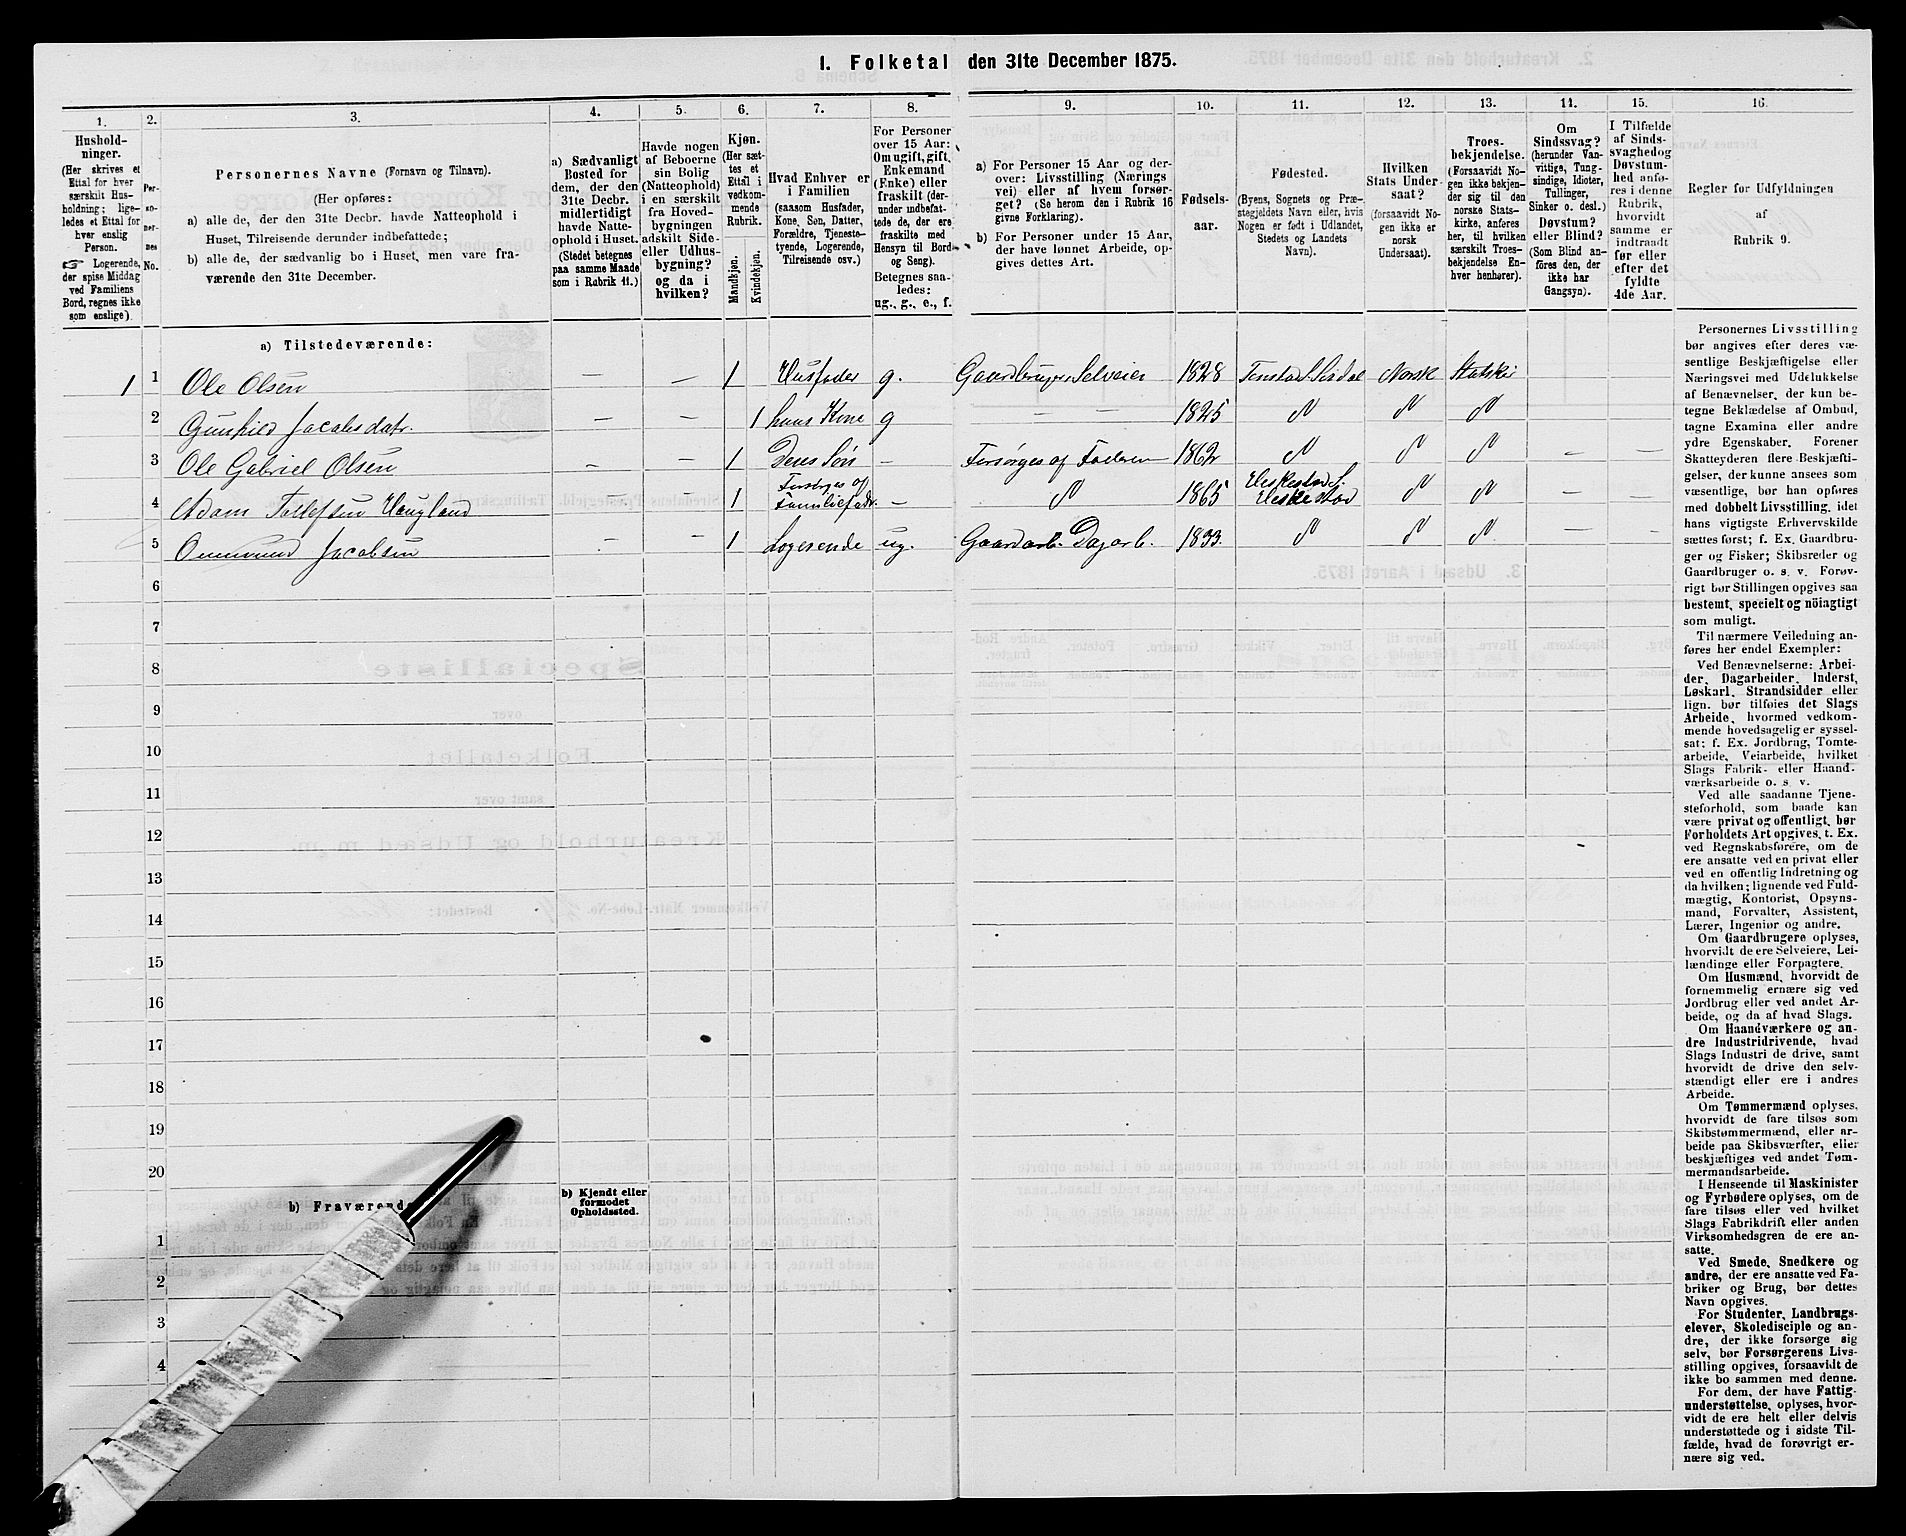 1. Folketal den 31te December 1875.
1.
Hushold-
ninger.
(Her skrives et
Ettal for hver
særskilt Hus-
holdning; lige-
ledes et Ettal for
hver enslig
Person.
☞ Logerende,
der spise Middag
ved Familiens
Bord, regnes ikke
som enslige).
2.
Per-
so-
ner-
nes
No.
3.
Personernes Navne (Fornavn og Tilnavn).
(Her opføres:
a) alle de, der den 31te Decbr. havde Natteophold i
Huset, Tilreisende derunder indbefattede;
b) alle de, der sædvanlig bo i Huset, men vare fra-
værende den 31te December.
4.
a) Sædvanligt
Bosted for
dem, der den
31te Decbr.
midlertidigt
havde Natte-
ophold i Huset.
(Stedet betegnes
paa samme Maade
som i Rubrik 11.)
5.
Havde nogen
af Beboerne
sin Bolig
(Natteophold)
i en særskilt
fra Hoved-
bygningen
adskilt Side-
eller Udhus-
bygning?
og da i
hvilken?
6.
Kjøn.
(Her sæt-
tes et
Ettal i
vedkom-
mende
Rubrik.
Mandkjøn.
Kvindekjøn.
7.
Hvad Enhver er
i Familien
(saasom Husfader,
Kone, Søn, Datter,
Forældre, Tjeneste-
tyende, Logerende,
Tilreisende osv.)
8.
For Personer
over 15 Aar:
Om ugift, gift,
Enkemand
(Enke) eller
fraskilt (der-
under indbefat-
tede de, der ere
fraskilte med
Hensyn til Bord
og Seng).
Betegnes saa-
ledes:
ug., g., e., f.
9.
a) For Personer 15 Aar og der-
over: Livsstilling (Nærings
vei) eller af hvem forsør-
get? (Se herom den i Rubrik 16
givne Forklaring).
b) For Personer under 15 Aar,
der have lønnet Arbeide, op-
gives dettes Art.
10.
Fødsels-
aar.
11.
Fødested.
(Byens, Sognets og Præ-
stegjeldets Navn eller, hvis
Nogen er født i Udlandet,
Stedets og Landets
Navn).
12.
Hvilken
Stats Under-
saat?
(forsaavidt No-
gen ikke er
norsk
Undersaat).
13.
Troes-
bekjendelse.
(Forsaavidt No-
gen ikke bekjen-
der sig til den
norske Stats-
kirke, anføres
her, til hvilken
særskilt Troes-
bekjendelse En-
hver henhører).
14.
Om
Sindssvag?
(herunder Van-
vittige, Tung-
sindige, Idioter,
Tullinger,
Sinker o. desl.)
Døvstum?
eller Blind?
(Som Blind an-
føres den, der
ikke har
Gangsyn).
15.
I Tilfælde
af Sinds-
svaghed og
Døvstum-
hed anfø-
res i denne
Rubrik,
hvorvidt
samme er
indtraadt
før eller
efter det
fyldte
4de Aar.
16.
Regler for Udfyldningen
af
Rubrik 9.
a) Tilstedeværende:
1 1 Ole Olsen — — 1 Husfader g. Gaardbruger Selveier 1828 Norsk Statskir — —
2 Gunhild Jacobsdatr. — — 1 hans Kone g — — 1825 〃 〃 〃
3 Ole Gabriel Olsen — — 1 Deres Søn — Forsørges af Faderen 1862 〃 〃 〃
4 Adam Tollefsen Haugland — — 1 Forsørges af Familiefadr. — 〃 1865 Heskestad S. Heskestad 〃 〃 — —
5 Ommund Jacobsen — — 1 Logerende ug. Gaardarb. Dagarb. 1833. 〃 〃 〃 — —
6
7
8
9
10
11
12
13
14
15
16
17
18
19
20
b) Fraværend
b) Kjendt eller
formodet
Opholdssted.
1
2
3
4
Personernes Livsstilling
bør angives efter deres væ-
sentlige Beskjæftigelse eller
Næringsvei med Udelukkelse
af Benævnelser, der kun be-
tegne Beklædelse af Ombud,
tagne Examina eller andre
ydre Egenskaber. Forener
Skatteyderen flere Beskjæfti-
gelser, der kunne ansees som
væsentlige, bør han opføres
med dobbelt Livsstilling, idet
hans vigtigste Erhvervskilde
sættes først; f. Ex. Gaardbru-
ger og Fisker; Skibsreder og
Gaardbruger o. s. v. Forøv-
rigt bør Stillingen opgives saa
bestemt, specielt og nöiagtigt
som muligt.
Til nærmere Veiledning an-
føres her endel Exempler:
Ved Benævnelserne: Arbei-
der, Dagarbeider, Inderst,
Løskarl, Strandsidder eller
lign. bør tilføies det Slags
Arbeide, hvormed vedkom-
mende hovedsagelig er syssel-
sat; f. Ex. Jordbrug, Tomte-
arbeide, Veiarbeide, hvilket
Slags Fabrik- eller Haand-
værksarbeide o. s. v.
Ved alle saadanne Tjene-
steforhold, som baade kan
være privat og offentligt, bør
Forholdets Art opgives, t. Ex.
ved Regnskabsførere, om de
ere ansatte ved en privat eller
ved en offentlig Indretning og
da hvilken; lignende ved Fuld-
mægtig, Kontorist, Opsyns-
mand, Forvalter, Assistent,
Lærer, Ingeniør og andre.
Om Gaardbrugere oplyses,
hvorvidt de ere Selveiere, Lei-
lændinge eller Forpagtere.
Om Husmænd, hvorvidt de
fornemmelig ernære sig ved
Jordbrug eller ved andet Ar-
beide, og da af hvad Slags.
Om Haandværkere og an-
dre Industridrivende, hvad
Slags Industri de drive, samt
hvorvidt de drive den selv-
stændigt eller ere i andres
Arbeide.
Om Tømmermænd oplyses,
hvorvidt de fare tilsøs som
Skibstømmermænd, eller ar-
beide paa Skibsværfter, eller
beskjæftiges ved andet Tøm-
mermandsarbeide.
I Henseende til Maskinister
og Fyrbødere oplyses, om de
fare tilsøs eller ved hvilket
Slags Fabrikdrift eller anden
Virksomhedsgren de ere an-
satte.
Ved Smede, Snedkere og
andre, der ere ansatte ved Fa-
briker og Brug, bør dettes
Navn opgives.
For Studenter, Landbrugs-
elever, Skoledisciple og an-
dre, der ikke forsørge sig
selv, bør Forsørgerens Livs-
stilling opgives, forsaavidt de
ikke bo sammen med denne.
For dem, der have Fattig-
understøttelse, oplyses, hvor-
vidt de ere helt eller delvis
understøttede og i sidste Til-
fælde, hvad de forøvrigt er-
nære sig ved.